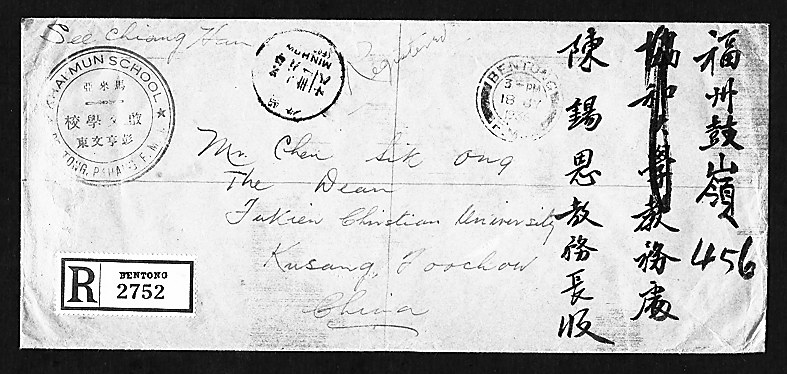 See Chiang Han
Registered
KHAI MUN SCHOOL
馬來亞
啟文學校
彭亨文東
BENTONG, PAHANG F.M.S.
MINHOW
BENTONG
3 - PM
18 JY
Mr. Chen Sik Ong
The Dean
Fukien Christian University
Kusang, Foochow
China
R
BENTONG
2752
福州鼓嶺456
協和大學教務處
陳錫恩教務長收